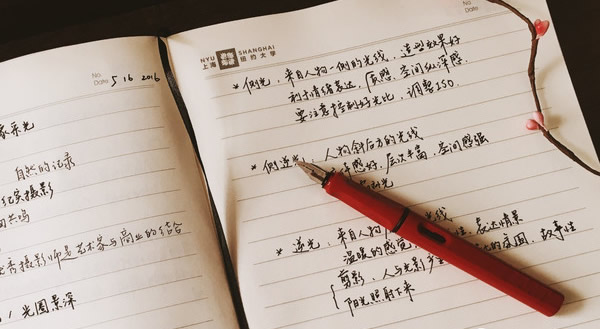 No.
Date 5 16 2016
自然的记录
纪实摄影
摄影师是艺术家与商业的结合
光圈景深
NYU SHANGHAI
上海 纽约大学
No.
Date
* 侧光,来自人物一侧的光线,造型效果好
利于情绪表达,质感,空间纵深感.
要注意控制好光比,调整ISO.
* 侧逆光 人物斜后方的光线
感好,层次丰富,空间感强
* 逆光,来自人物 光线
温暖的感觉 表达情景
剪影,人与光影 的氛围,故事性
阳光照射下来